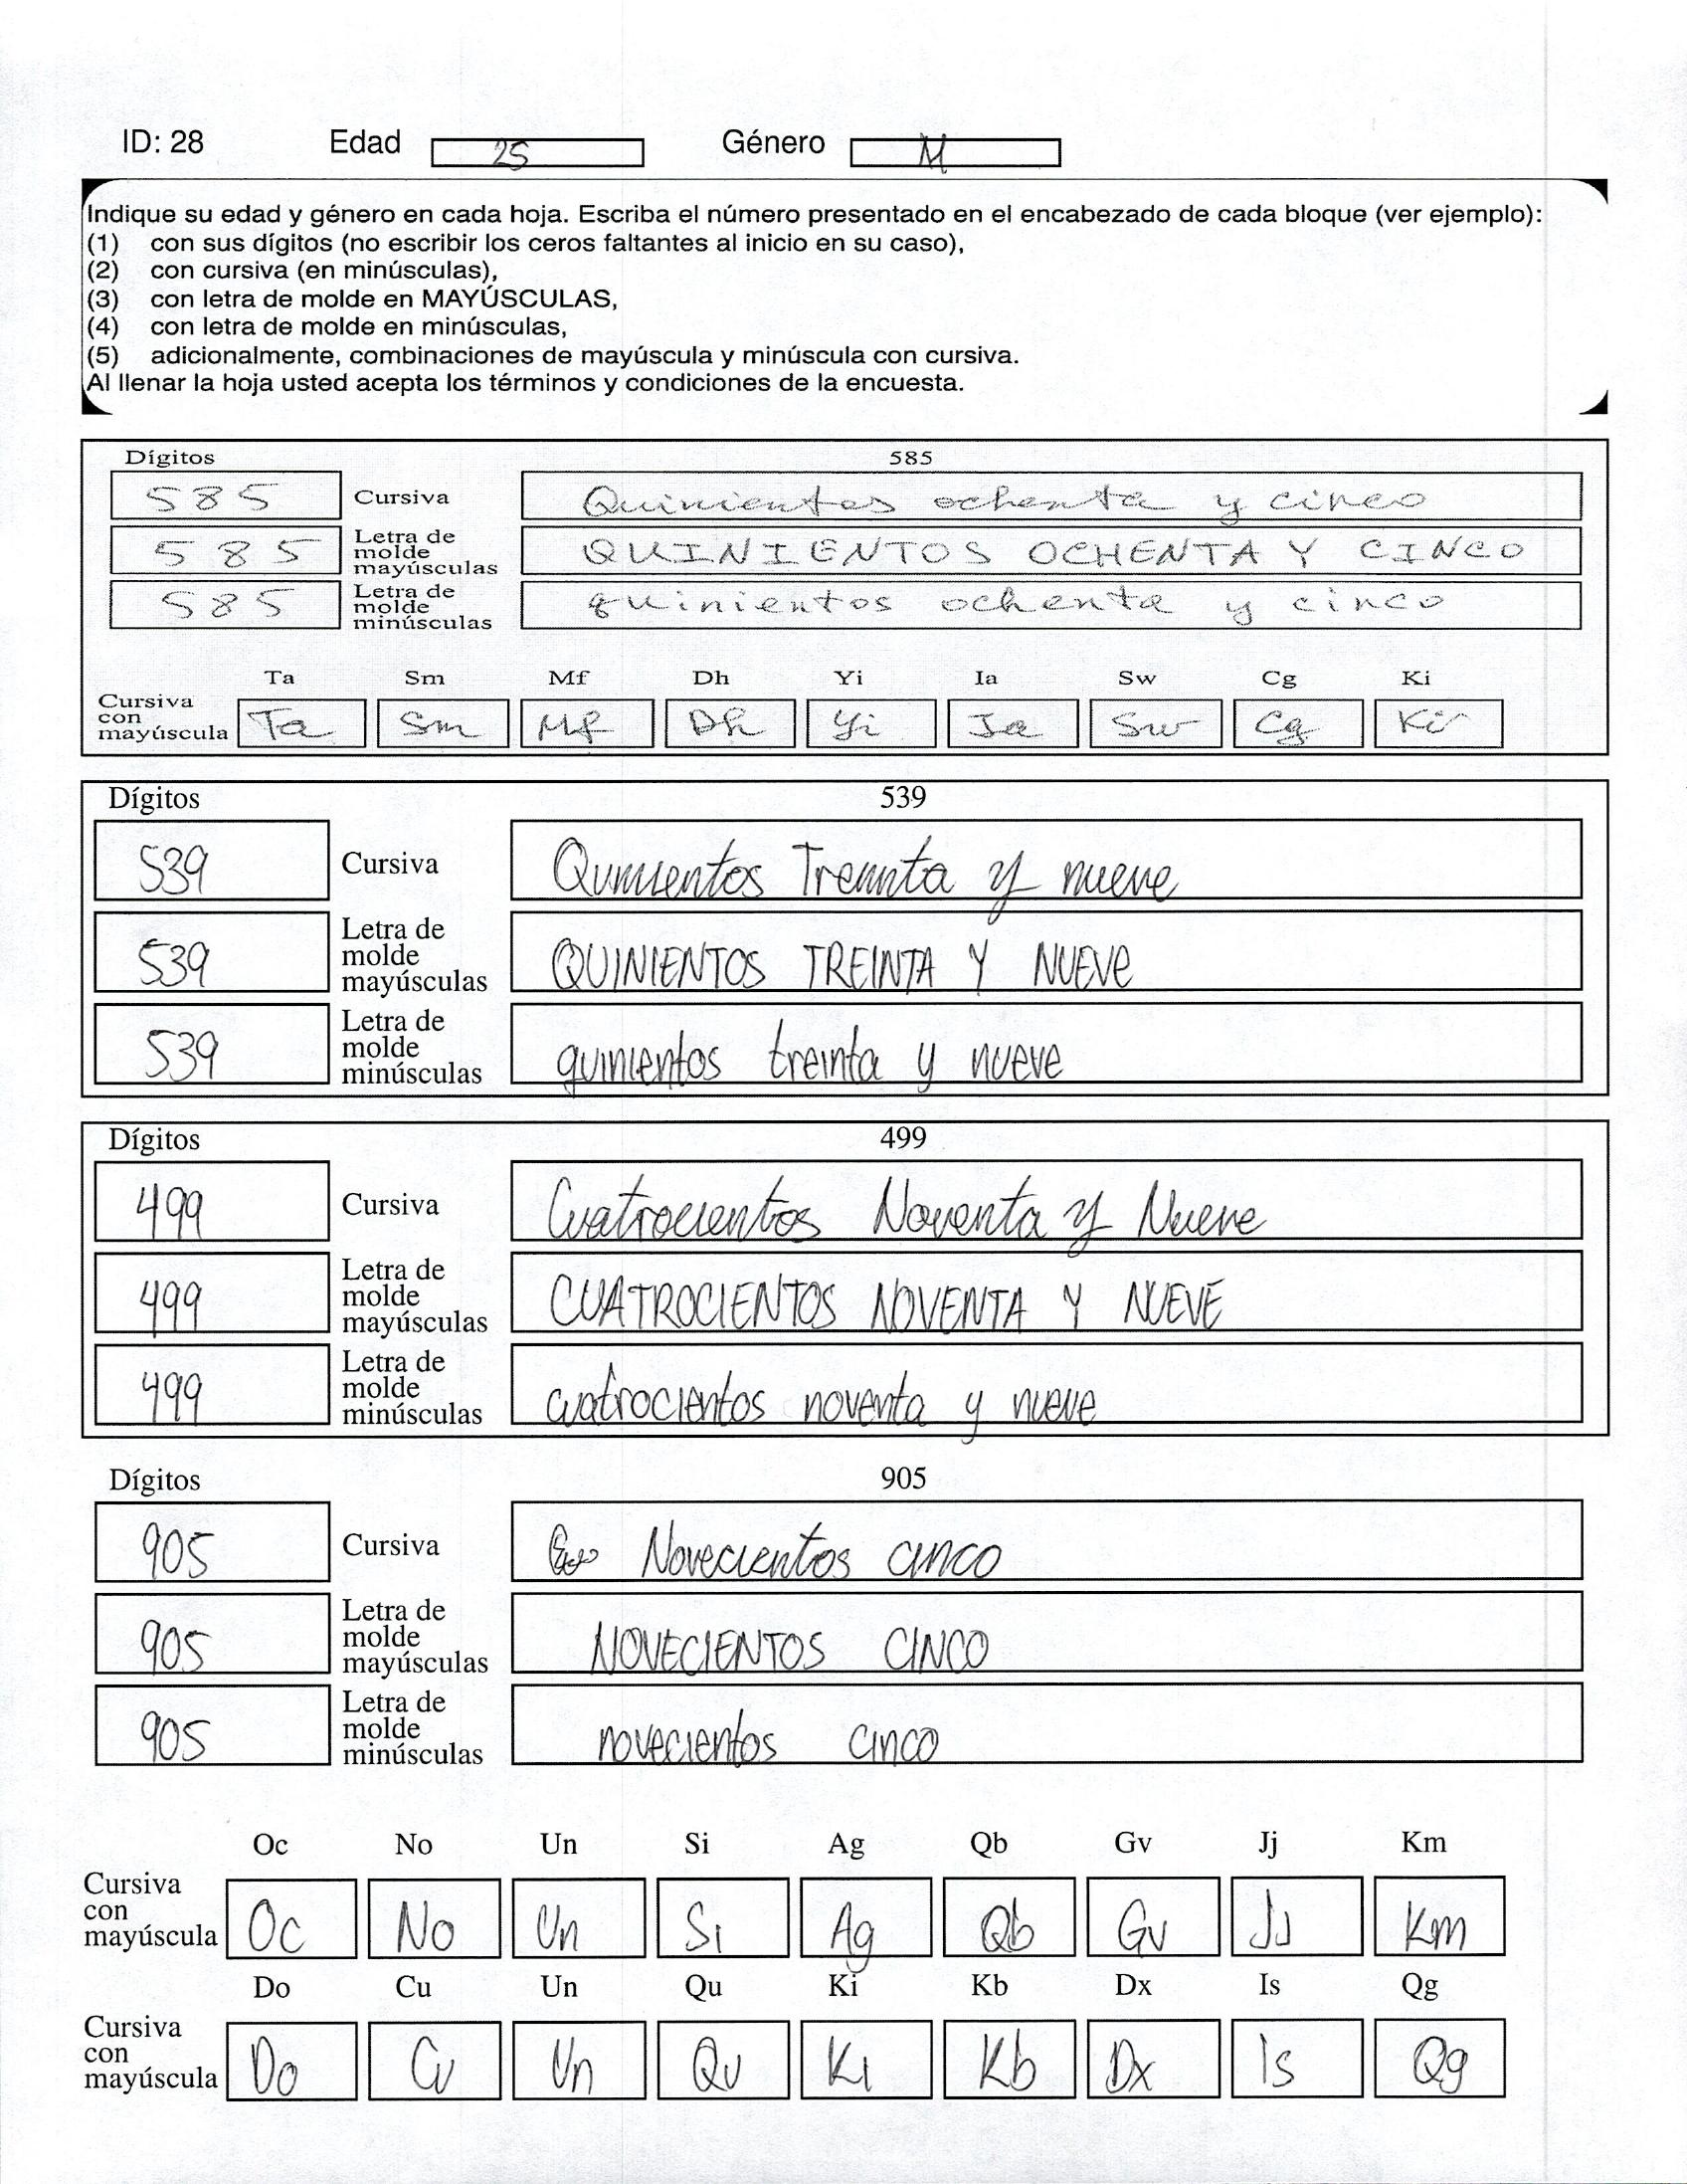 ID: 28 Edad 25 Género M
Indique su edad y género en cada hoja. Escriba el número presentado en el encabezado de cada bloque (ver ejemplo):
(1) con sus dígitos (no escribir los ceros faltantes al inicio en su caso),
(2) con cursiva (en minúsculas),
(3) con letra de molde en MAYÚSCULAS,
(4) con letra de molde en minúsculas,
(5) adicionalmente, combinaciones de mayúscula y minúscula con cursiva.
Al llenar la hoja usted acepta los términos y condiciones de la encuesta.
Dígitos 585
585 Cursiva Quinientos ochenta y cinco
585 Letra de molde mayúsculas QUINIENTOS OCHENTA Y CINCO
585 Letra de molde minúsculas quinientos ochenta y cinco
Ta Sm Mf Dh Yi Ia Sw Cg Ki
Cursiva con mayúscula Ta Sm Mf Dh Yi Ia Sw Cg Ki
Dígitos 539
539 Cursiva Quinientos Treinta y nueve
539 Letra de molde mayúsculas QUINIENTOS TREINTA Y NUEVe
539 Letra de molde minúsculas quinientos treinta y nueve
Dígitos 499
499 Cursiva Cuatrocientos Noventa y Nueve
499 Letra de molde mayúsculas CUATROCIENTOS NOVENTA Y NUEVE
499 Letra de molde minúsculas cuatrocientos noventa y nueve
Dígitos 905
905 Cursiva Novecientos cinco
905 Letra de molde mayúsculas NOVECIENTOS CINCO
905 Letra de molde minúsculas novecientos cinco
Oc No Un Si Ag Qb Gv Jj Km
Cursiva con mayúscula Oc No Un Si Ag Qb Gv Jj Km
Do Cu Un Qu Ki Kb Dx Is Qg
Cursiva con mayúscula Do Cu Un Qu Ki Kb Dx Is Qg